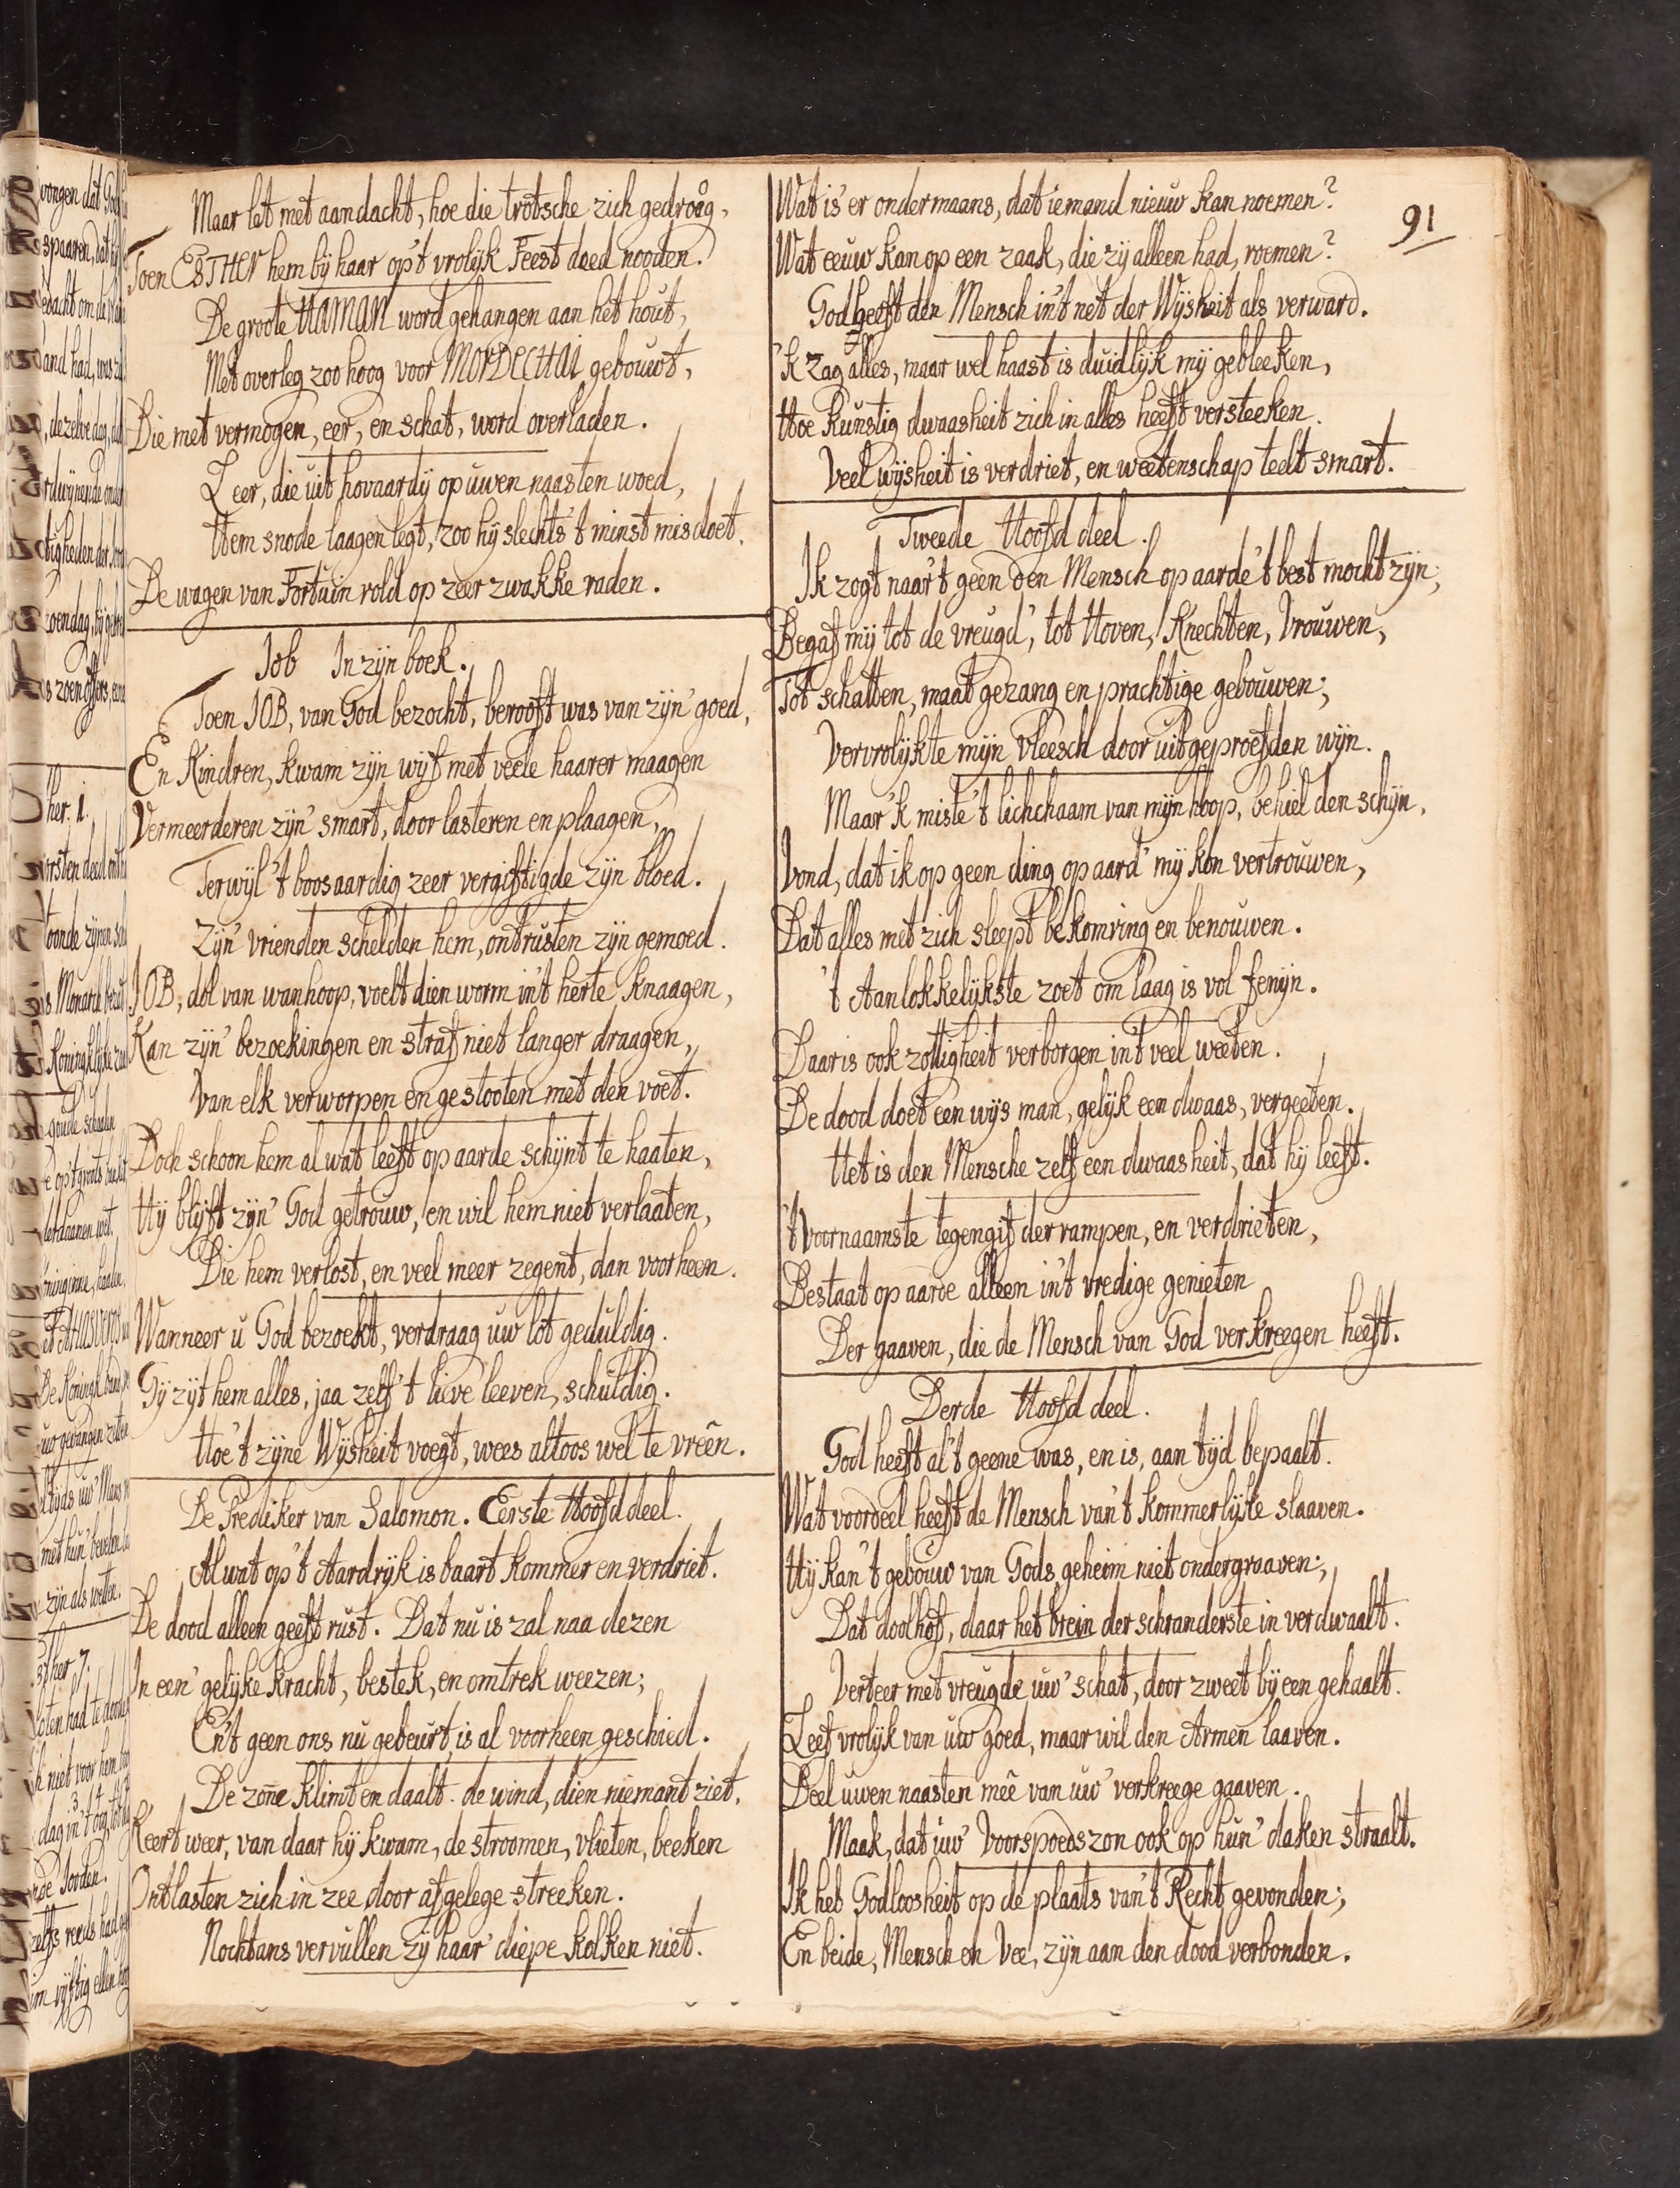 Maar let met aandacht, hoe die trotsche zich gedroåg,
Toen ESTHER hem bij haar op't vrolijk Feest deed nooden.
De groote HAMAN word gehangen aan het hout,
Met overleg zoo hoog voor MORDECHAI gebouwt,
Die met vermogen, eer, en schat, word overladen.
Leer, die uit hovaardij op uwen naasten woed,
Hem snode laagen legt, zoo hij slechts 't minst misdoet.
De wagen van Fortuin rold op zeer zwakke raden.
Job In zijn boek.
Toen JOB, van God bezocht, berooft was van zijn' goed,
En Kindren, kwam zijn wijf met veele haarer maagen
Vermeerderen zijn' smart, door lasteren en plaagen,
Terwijl 't boosaardig zeer vergiftigde zijn bloed.
Zijn' vrienden schelden hem, ontrusten zijn gemoed.
JOB, dol van wanhoop, voelt dien worm in't herte knaagen,
Kan zijn' bezoekingen en straf niet langer draagen,
Van elk verworpen en gestooten met den voet.
Doch schoon hem al wat leeft op aarde schijnt te haaten,
Hij blijft zijn' God getrouw, en wil hem niet verlaaten,
Die hem verlost, en veel meer zegent, dan voorheen.
Wanneer u God bezoekt, verdraag uw lot geduldig.
Gij zijt hem alles, jaa zelf 't lieve leeven, schuldig.
Hoe 't zijne Wijsheit voegt, wees altoos wel te vreên.
De Prediker van Salomon. Eerste Hoofddeel.
Al wat op 't Aardrijk is baart kommer en verdriet.
De dood alleen geeft rust. Dat nu is zal naa dezen
In een' gelijke kracht, bestek, en omtrek weezen;
En't geen ons nu gebeurt, is al voorheen geschied.
De zoñe klimt en daalt. de wind, dien niemant ziet,
Keert weer, van daar hij kwam, de stroomen, vlieten, beeken
Ontlasten zich in zee door afgelege streeken.
Nochtans vervullen zij haar' diepe kolken niet.
91
Wat is'er ondermaans, dat iemand nieuw kan noemen?
Wat eeuw kan op een zaak, die zij alleen had, roemen?
God heeft den Mensch in't net der Wijsheit als verward.
'k Zag alles, maar wel haast is duidlijk mij gebleeken,
Hoe kunstig dwaasheit zich in alles heeft versteeken.
Veel wijsheit is verdriet, en weetenschap teelt smart.
Tweede Hoofddeel.
Ik zogt naar't geen den Mensch op aarde 't best mocht zijn;
Begaf mij tot de vreugd', tot Hoven, Knechten, Vrouwen,
Tot schatten, maatgezang en prachtige gebouwen;
Vervrolijkte mijn vleesch door uitgeproefden wijn.
Maar 'k miste 't lichchaam van mijn hoop, behiel den schijn,
Vond, dat ik op geen ding op aard' mij kon vertrouwen,
Dat alles met zich sleept bekomring en benouwen.
't Aanlokkelijkste zoet om laag is vol fenijn.
Daar is ook zottigheit verborgen in't veel weeten.
De dood doet een wijs man, gelijk een dwaas, vergeeten.
Het is den Mensche zelf een dwaasheit, dat hij leeft.
't Voornaamste tegengif der rampen, en verdrieten,
Bestaat op aarde alleen in't vredige genieten
Der gaaven, die de Mensch van God verkreegen heeft.
Derde Hoofddeel.
God heeft al't geene was, en is, aan tijd bepaalt.
Wat voordeel heeft de Mensch van't kommerlijke slaaven.
Hij kan't gebouw van Gods geheim niet ondergraaven;
Dat doolhof, daar het brein der schranderste in verdwaalt.
Verteer met vreugde uw' schat, door zweet bij een gehaalt.
Leef vrolijk van uw goed, maar wil den Armen laaven.
Deel uwen naasten meê van uw' verkreege gaaven.
Maak, dat uw' Voorspoedszon ook op hun' daken straalt.
Ik heb Godloosheit op de plaats van't Recht gevonden;
En beide, Mensch en Vee, zijn aan den dood verbonden.